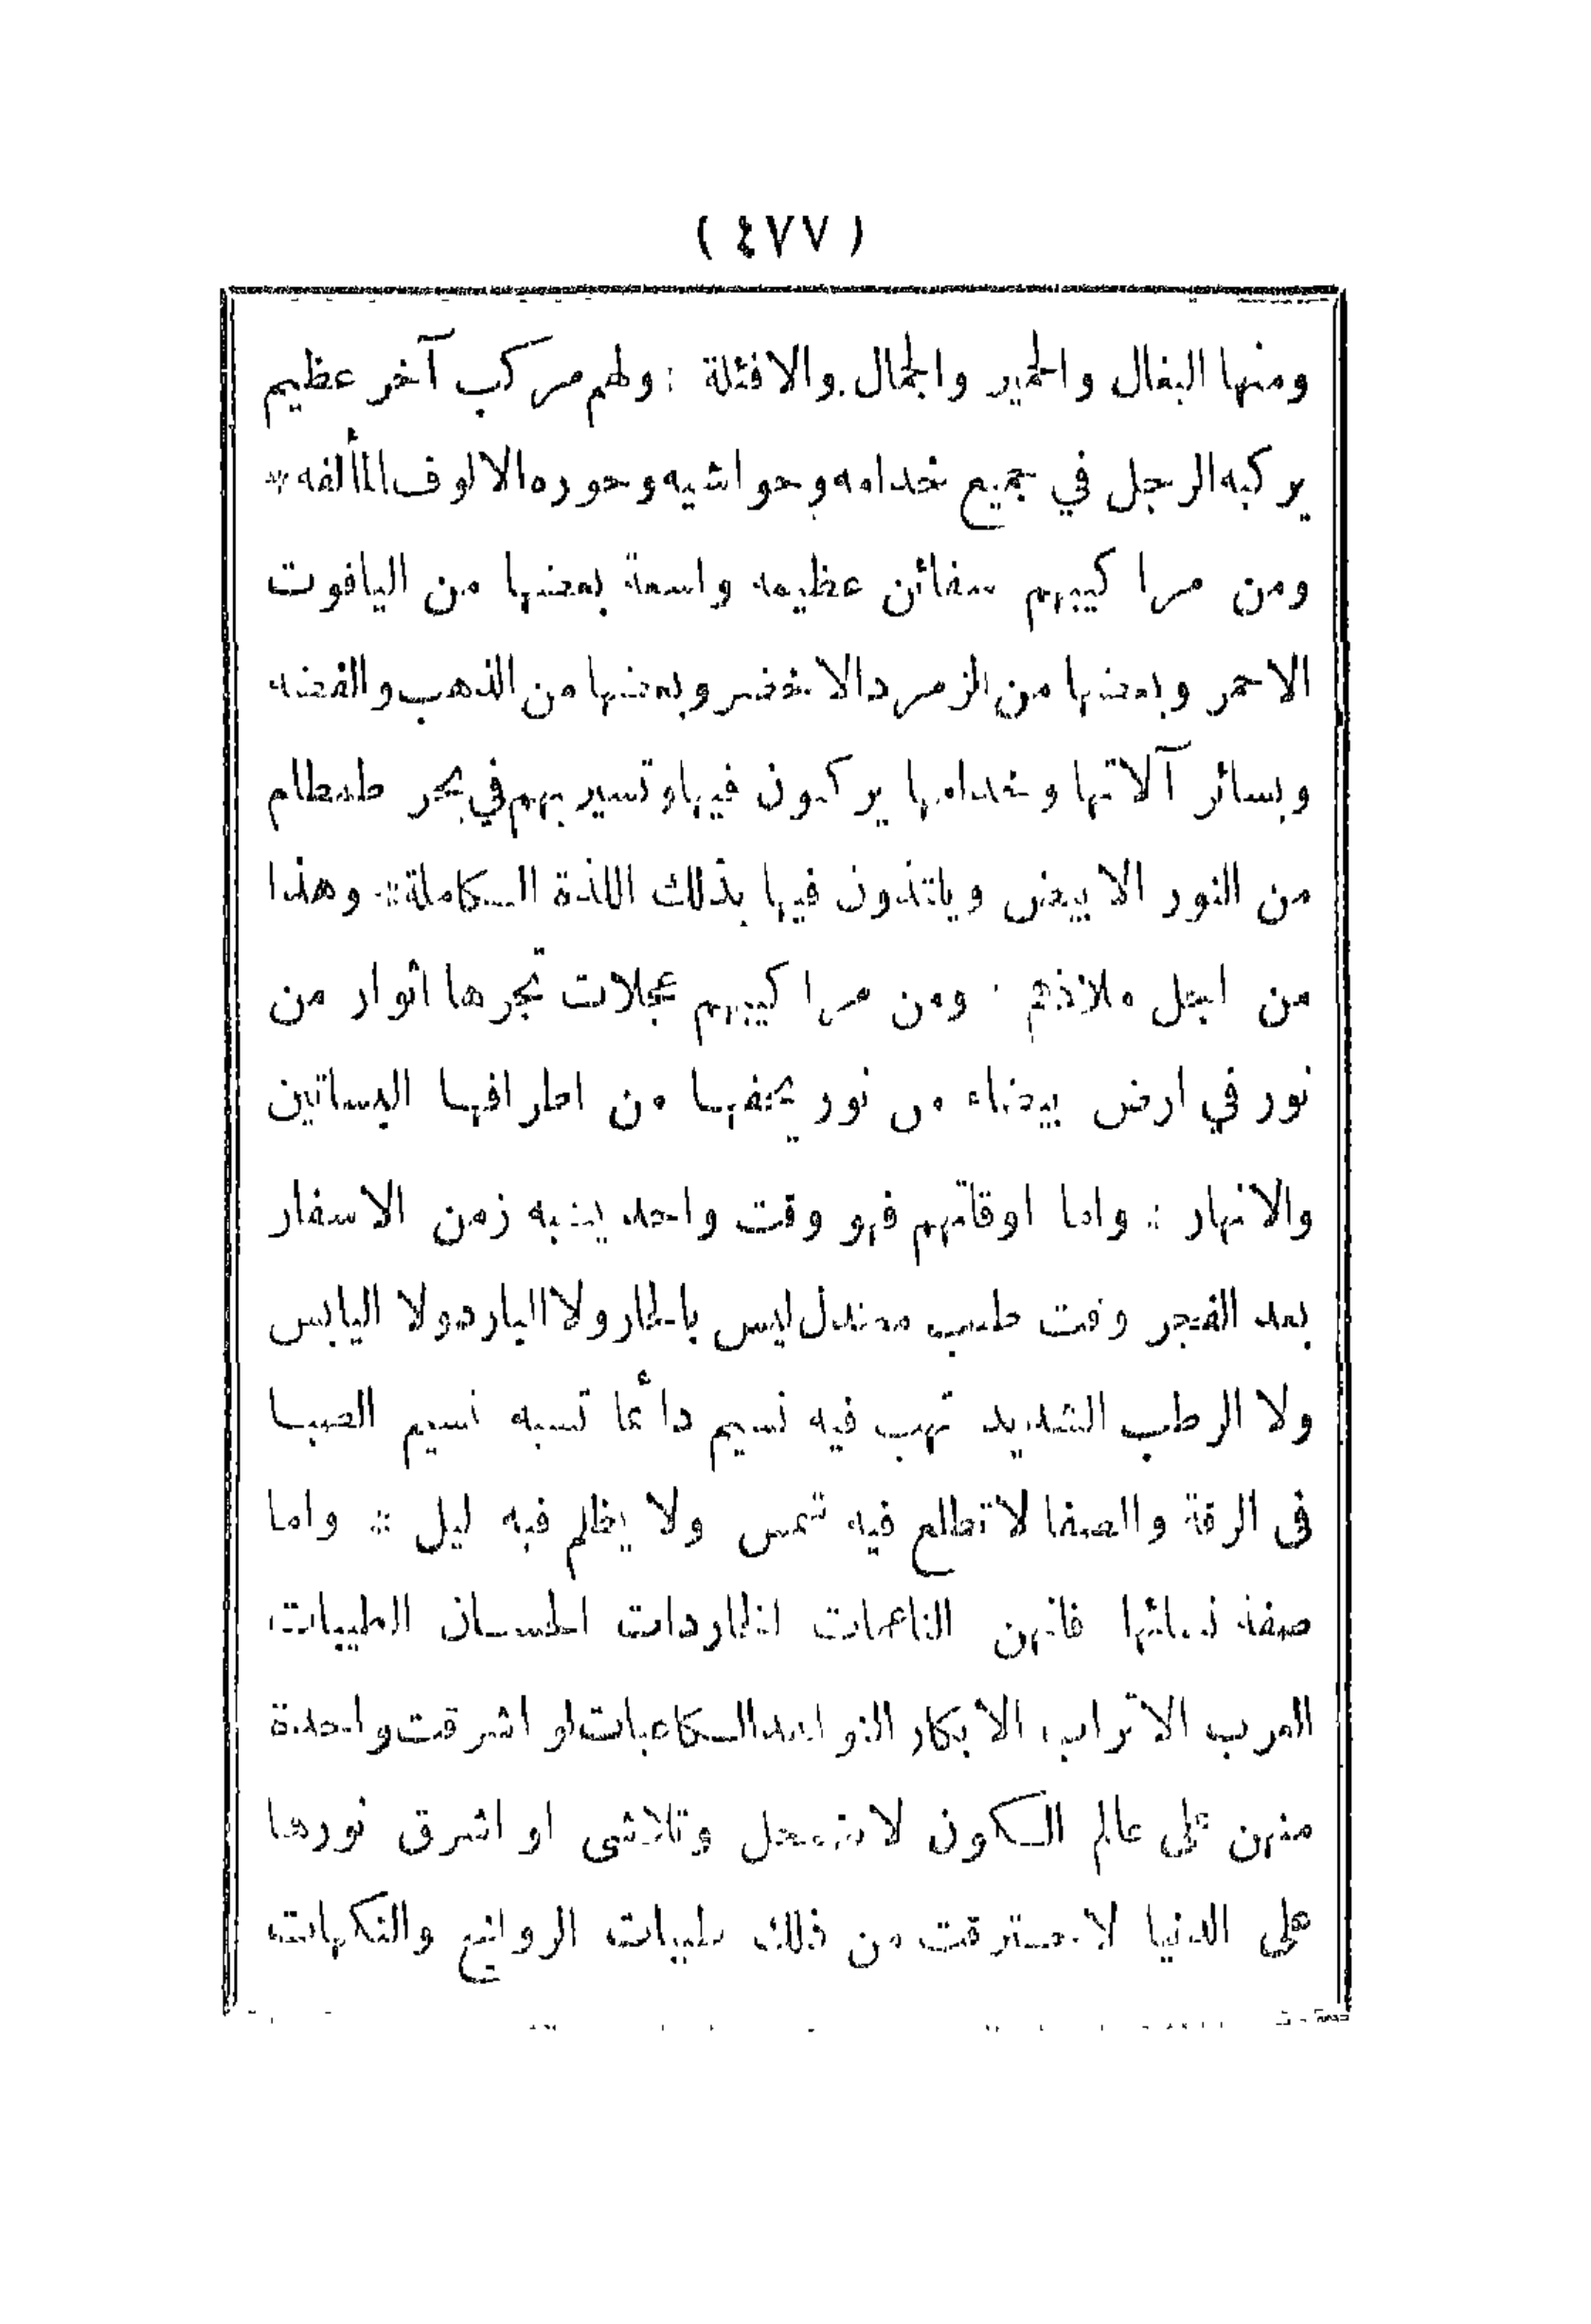 ( ٤٧٧ )
ومنها البغال والحمير والجمال والافئلة : ولهم مركب آخر عظيم
يركبه الرجل في جميع خدامه وحواشيه وحوره الالوف المألفه *
ومن مراكيبهم سفائن عظيمه واسعة بعضها من الياقوت
الاحمر وبعضها من الزمرد الاخضر وبعضها من الذهب والفضه
وبسائر آلاتها وخدامها يركبون فيها وتسير بهم في بحر طمطام
من النور الابيض ويلتذون فيها بذلك اللذة الكاملة :: وهذا
من اجل ملاذهم . ومن مراكيبهم عجلات تجرها اثوار من
نور في ارض بيضاء من نور يحفها من اطرافها البساتين
والانهار : واما اوقاتهم فهو وقت واحد يشبه زمن الاسفار
بعد الفجر وقت طيب معتدل ليس بالحار ولا البارد ولا اليابس
ولا الرطب الشديد تهب فيه نسيم دائما تشبه نسيم الصبا
في الرقة والصفا لا تطلع فيه شمس ولا يظلم فيه ليل :: واما
صفة نسائها فانهن الناعمات الخاردات الحسان الطيبات
العرب الاتراب الابكار النواهد الكاعبات لو اشرقت واحدة
منهن على عالم الكون لاضمحل وتلاشى او اشرق نورها
على الدنيا لاحترقت من ذلك طيبات الروائح والنكهات